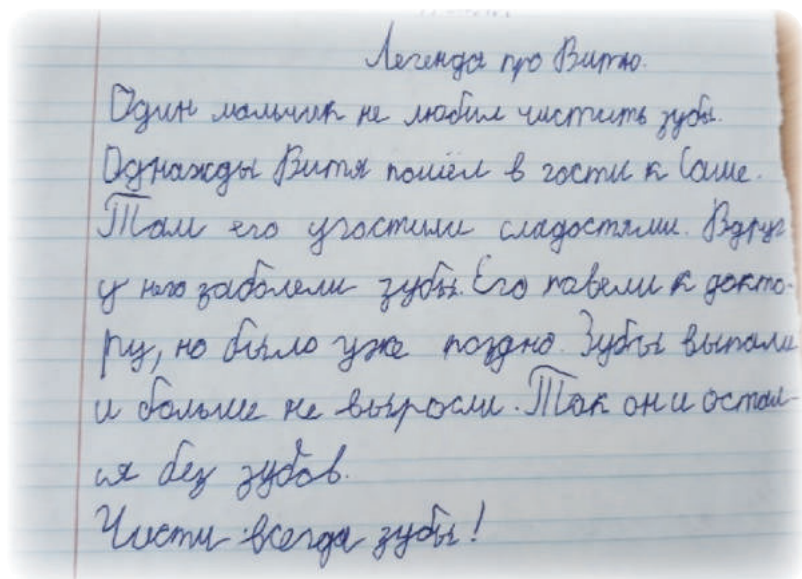 Легенда про Витю.
Один мальчик не любил чистить зубы.
Однажды Витя пошёл в гости к Саше.
Там его угостили сладостями. Вдруг
у него заболели зубы. Его повели к докто-
ру, но было уже поздно. Зубы выпали
и больше не выросли. Так он и остал-
ся без зубов.
Чисти всегда зубы!